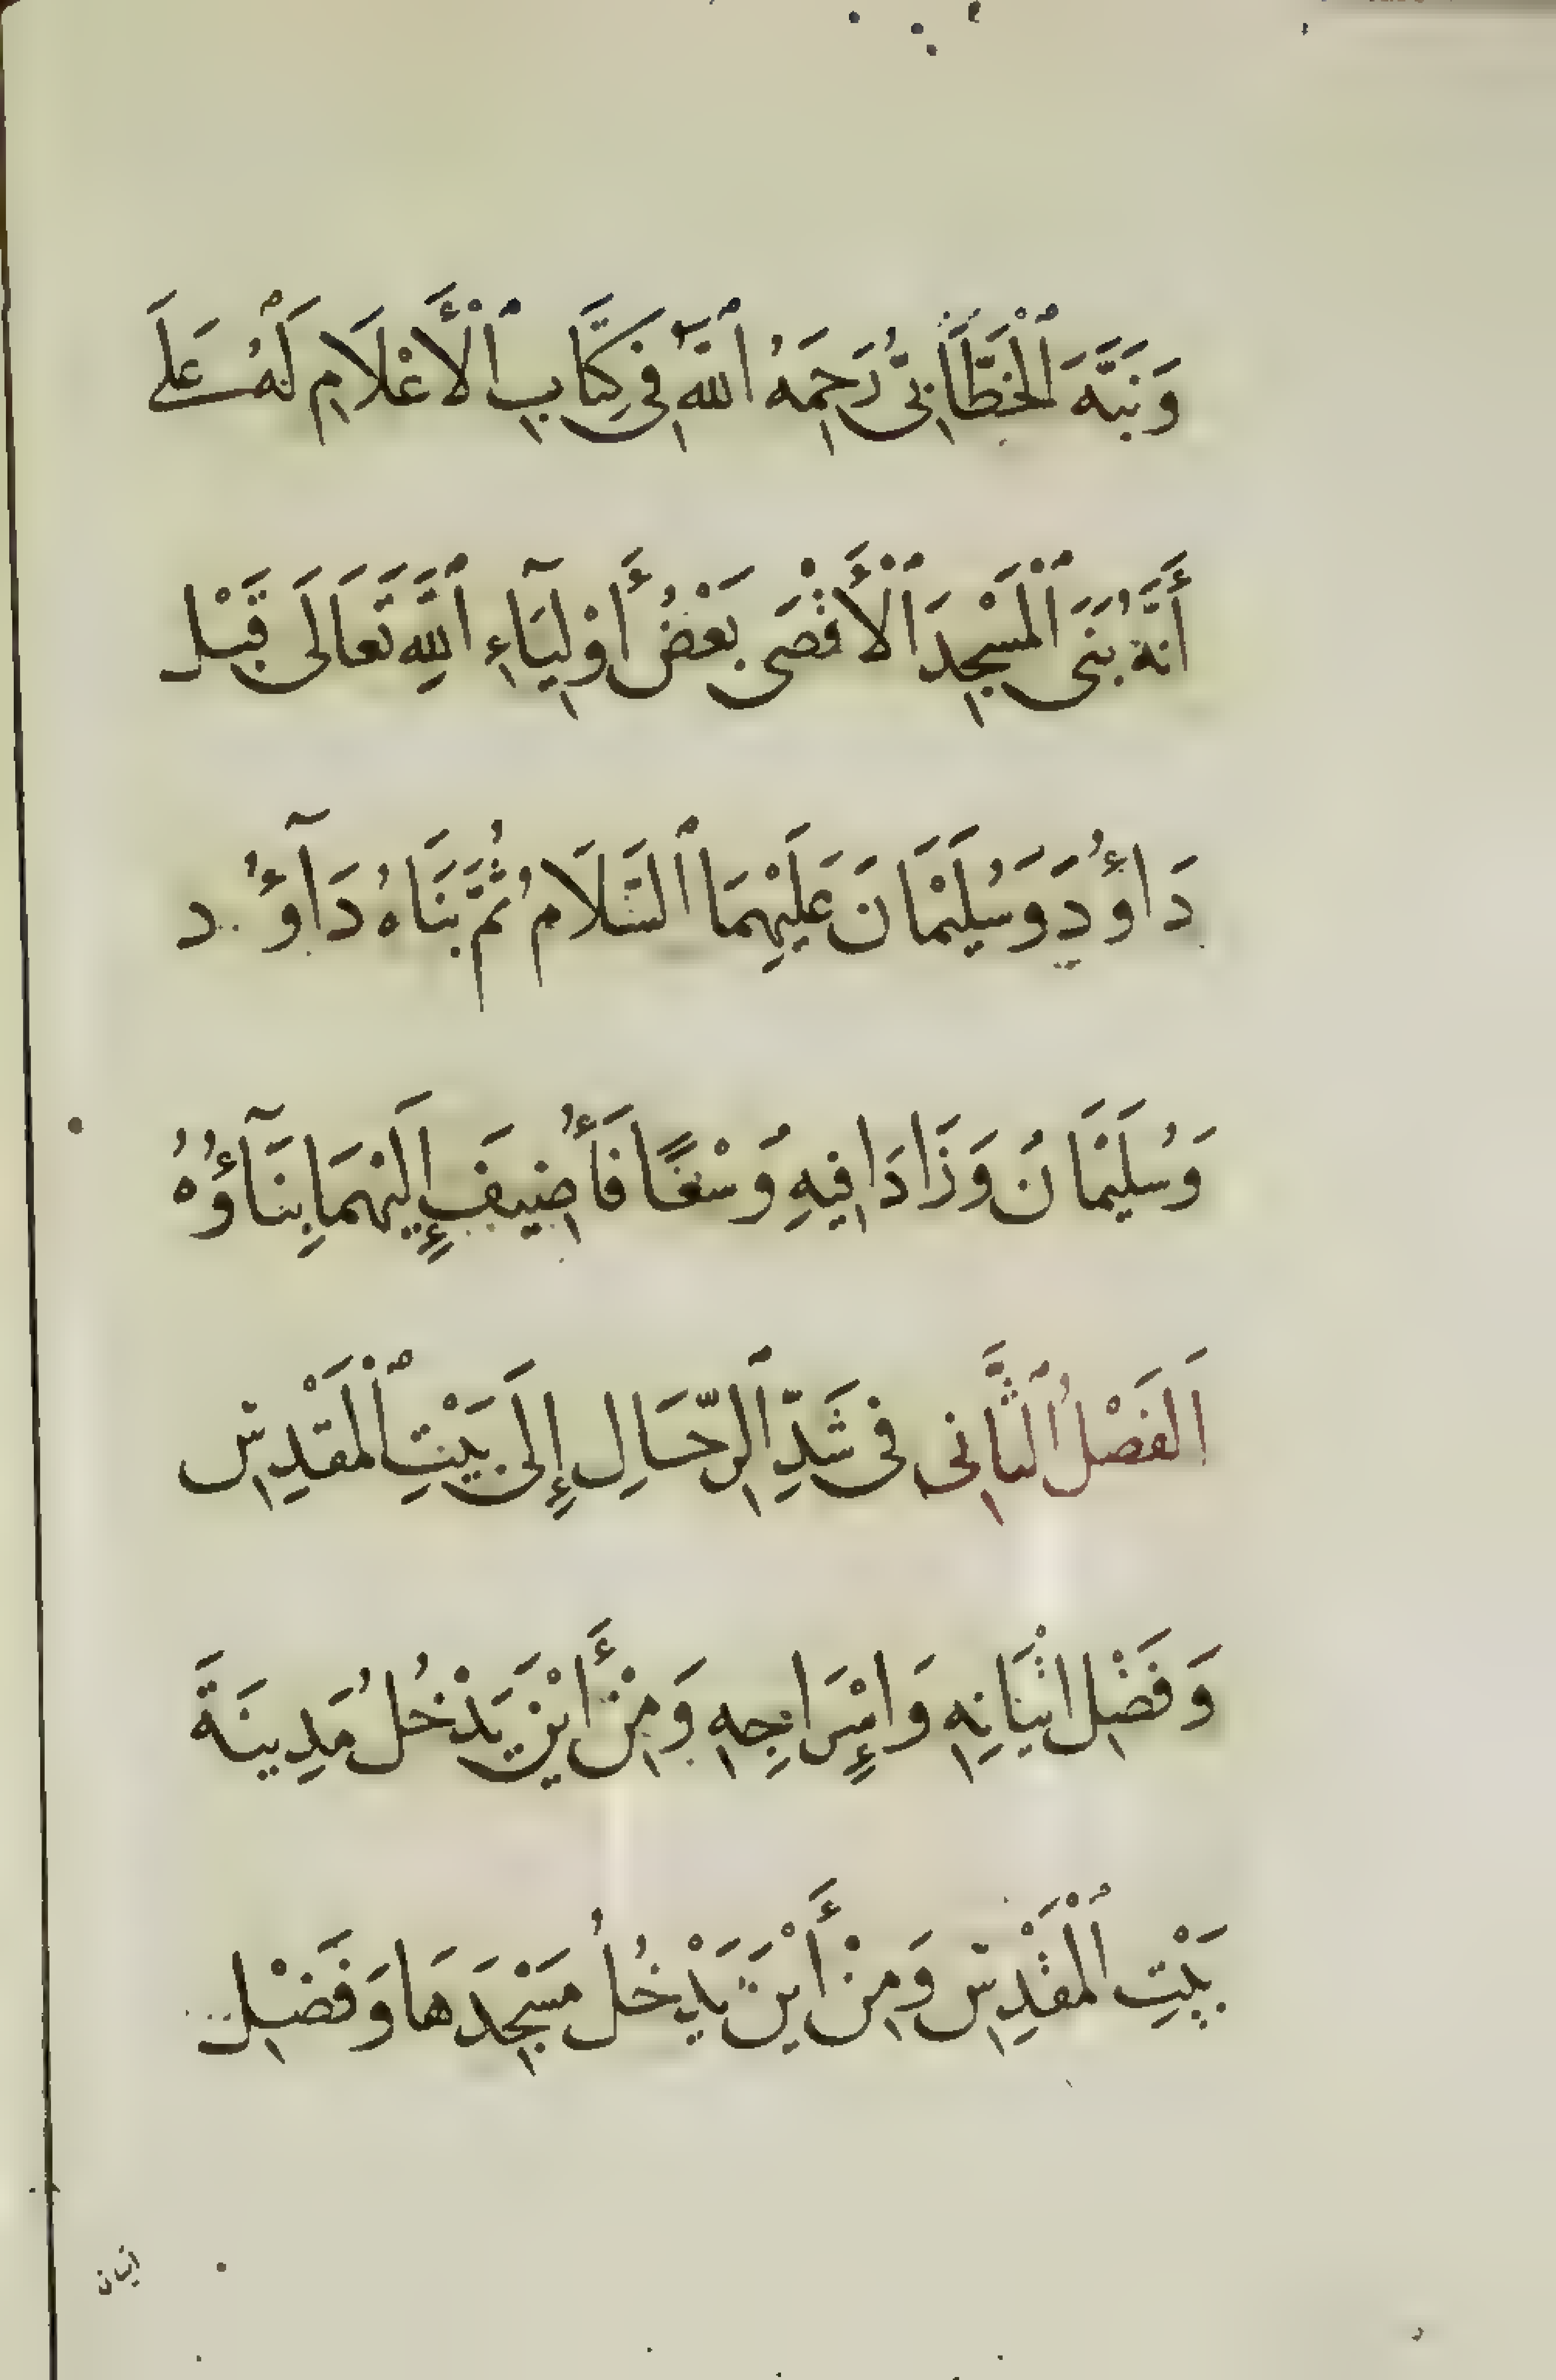 وَنَبَّهَ ٱلْخَطَّابِيُّ رَحِمَهُ ٱللَّهُ فِي كِتَابِ ٱلْأَعْلَامِ لَهُ عَلَى
أَنَّهُ بَنَى ٱلْمَسْجِدَ ٱلْأَقْصَى بَعْضُ أَوْلِيَآءِ ٱللَّهِ تَعَالَى قَبْلَ
دَاؤُدَ وَسُلَيْمَانَ عَلَيْهِمَا ٱلسَّلَامُ ثُمَّ بَنَاهُ دَآؤُد
وَسُلَيْمَانُ وَزَادَا فِيهِ وُسْعًا فَأُضِيفَ إِلَيْهِمَا بِنَآؤُهُ
اَلفَصْلُ ٱلثَّانِي فِي شَدِّ ٱلرِّحَالِ إِلَى بَيْتِ ٱلْمَقْدِسِ
وَفَضْلِ اتْيَانِهِ وَإِسْرَاجِهِ وَمِنْ أَيْنَ يَدْخُلُ مَدِينَةَ
بَيْتِ ٱلْمَقْدِسِ وَمِنْ أَيْنَ يَدْخُلُ مَسْجِدَهَا وَفَضْلِ
اتيان